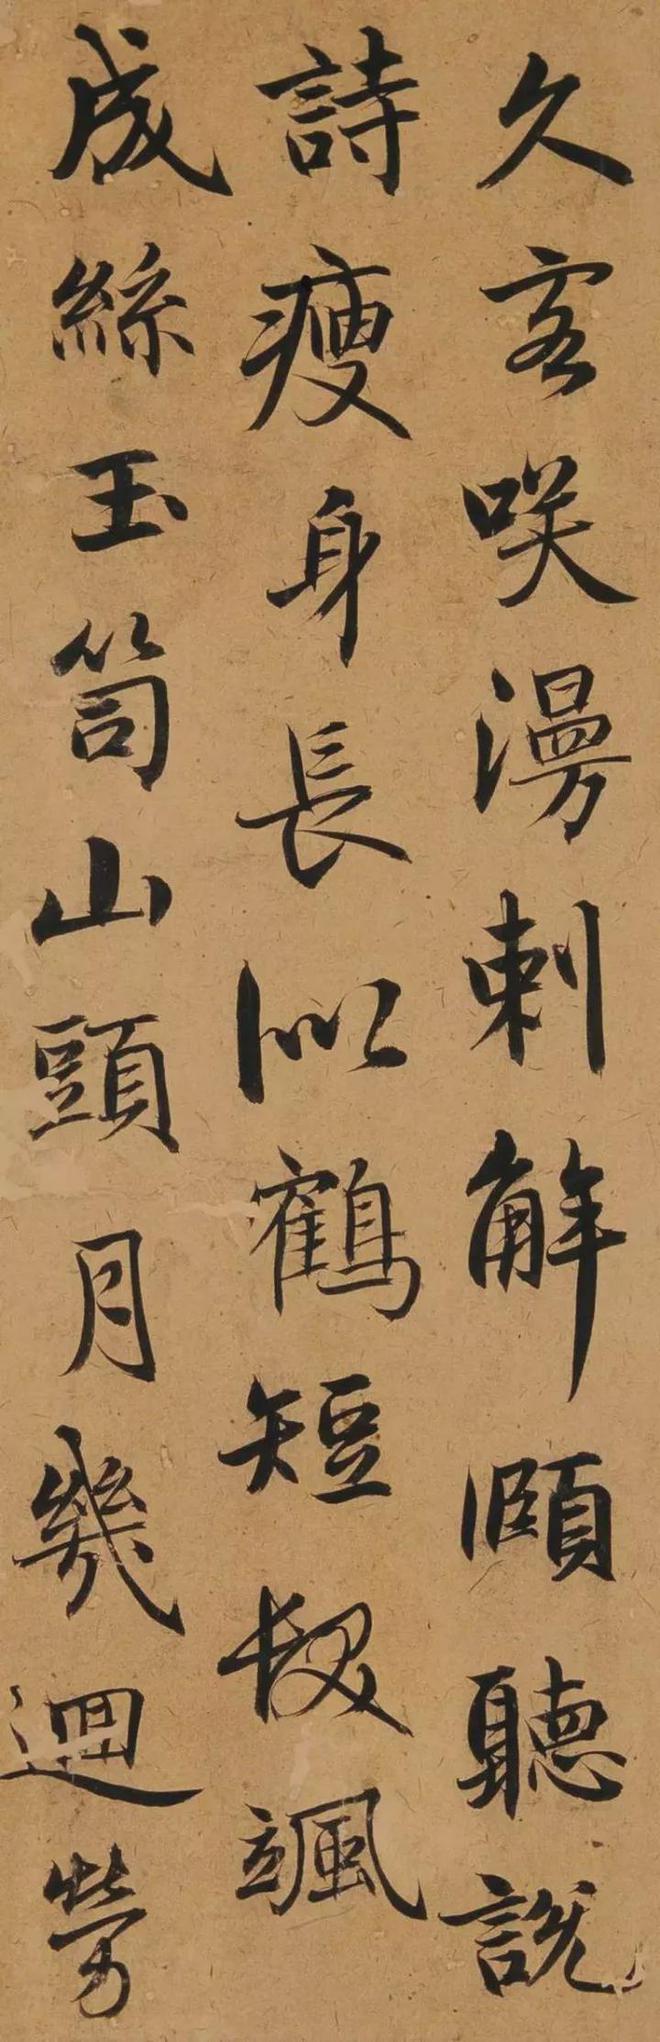 久客咲漫刺解頤聽說
詩瘦身長似鶴短髮颯
成絲玉笥山頭月幾迴勞